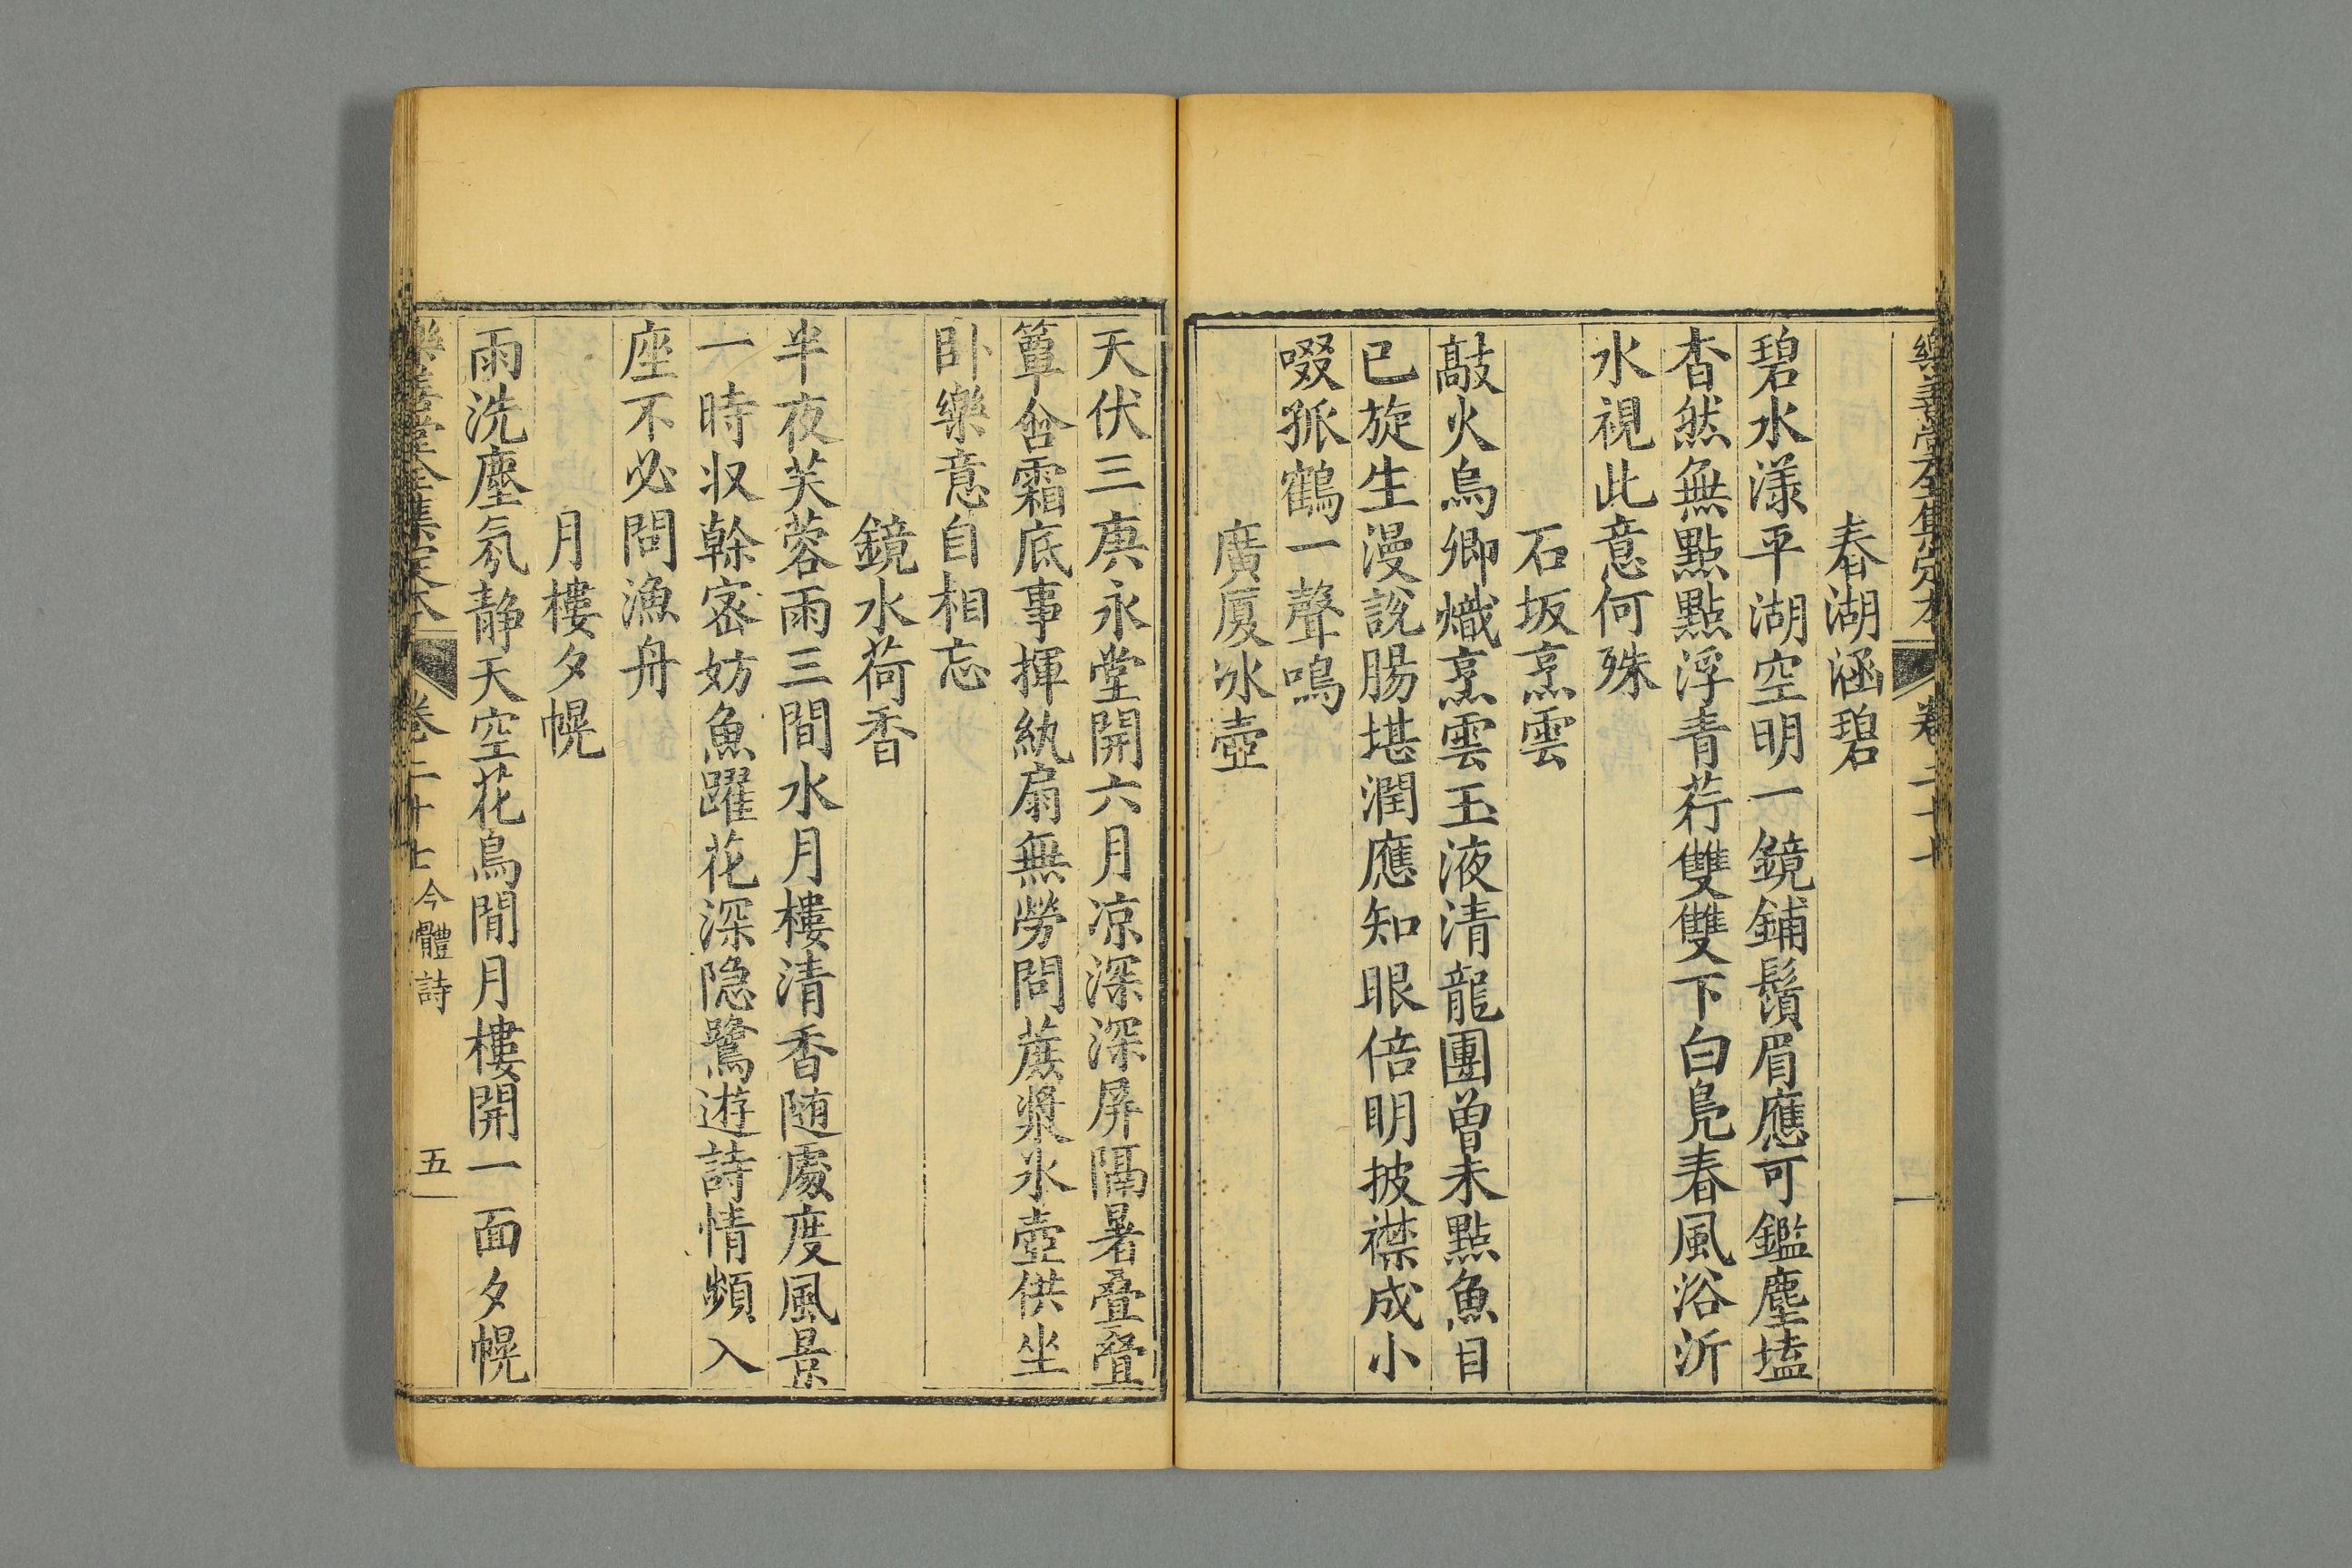 樂善堂全集定本 卷二十七
春湖涵碧
碧水漾平湖空明一鏡鋪鬚眉應可鑑塵壒
杳然無點點浮青荇雙雙下白鳧春風浴沂
水視此意何殊
石坂烹雲
敲火烏卿熾烹雲玉液清龍團曽未點魚目
已旋生漫說腸堪潤應知眼倍明披襟成小
啜孤鶴一聲鳴
廣厦冰壺
天伏三庚永堂開六月凉深深屏隔暑叠叠
簟含霜底事揮紈扇無勞問蔗漿氷壺供坐
卧樂意自相忘
鏡水荷香
半夜芙蓉雨三間水月樓清香随處度風景
一時収榦宻妨魚躍花深隐鷺遊詩情頻入
座不必問漁舟
月樓夕幌
雨洗塵氛静天空花鳥閒月樓開一面夕幌
樂善堂全集定本 卷二十七 今體詩 五